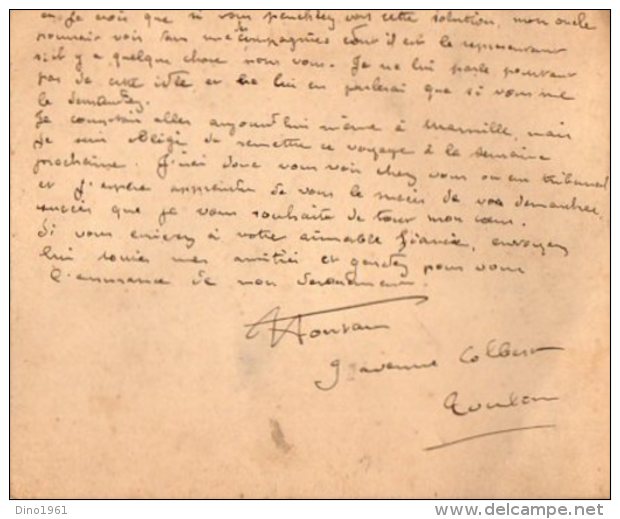 je crois que si vous penchiez vers cette solution, mon oncle
pourrait voir dans une compagnie dont il est le représentant
s'il y a quelque chose pour vous. Je ne lui parle pourtant
pas de cette idée et ne lui en parlerai que si vous me
le demandez.
Je comptais aller aujourd'hui même à Marseille, mais
je suis obligé de remettre ce voyage à la semaine
prochaine. J'irai donc vous voir chez vous ou au tribunal
et j'espère apprendre de vous le succès de vos démarches,
succès que je vous souhaite de tout mon cœur.
Si vous écrivez à votre aimable fiancée, envoyez
lui toutes mes amitiés et gardez pour vous
l'assurance de mon dévouement.
9 avenue Colbert
Toulon
Dino1961
www.delcampe.net